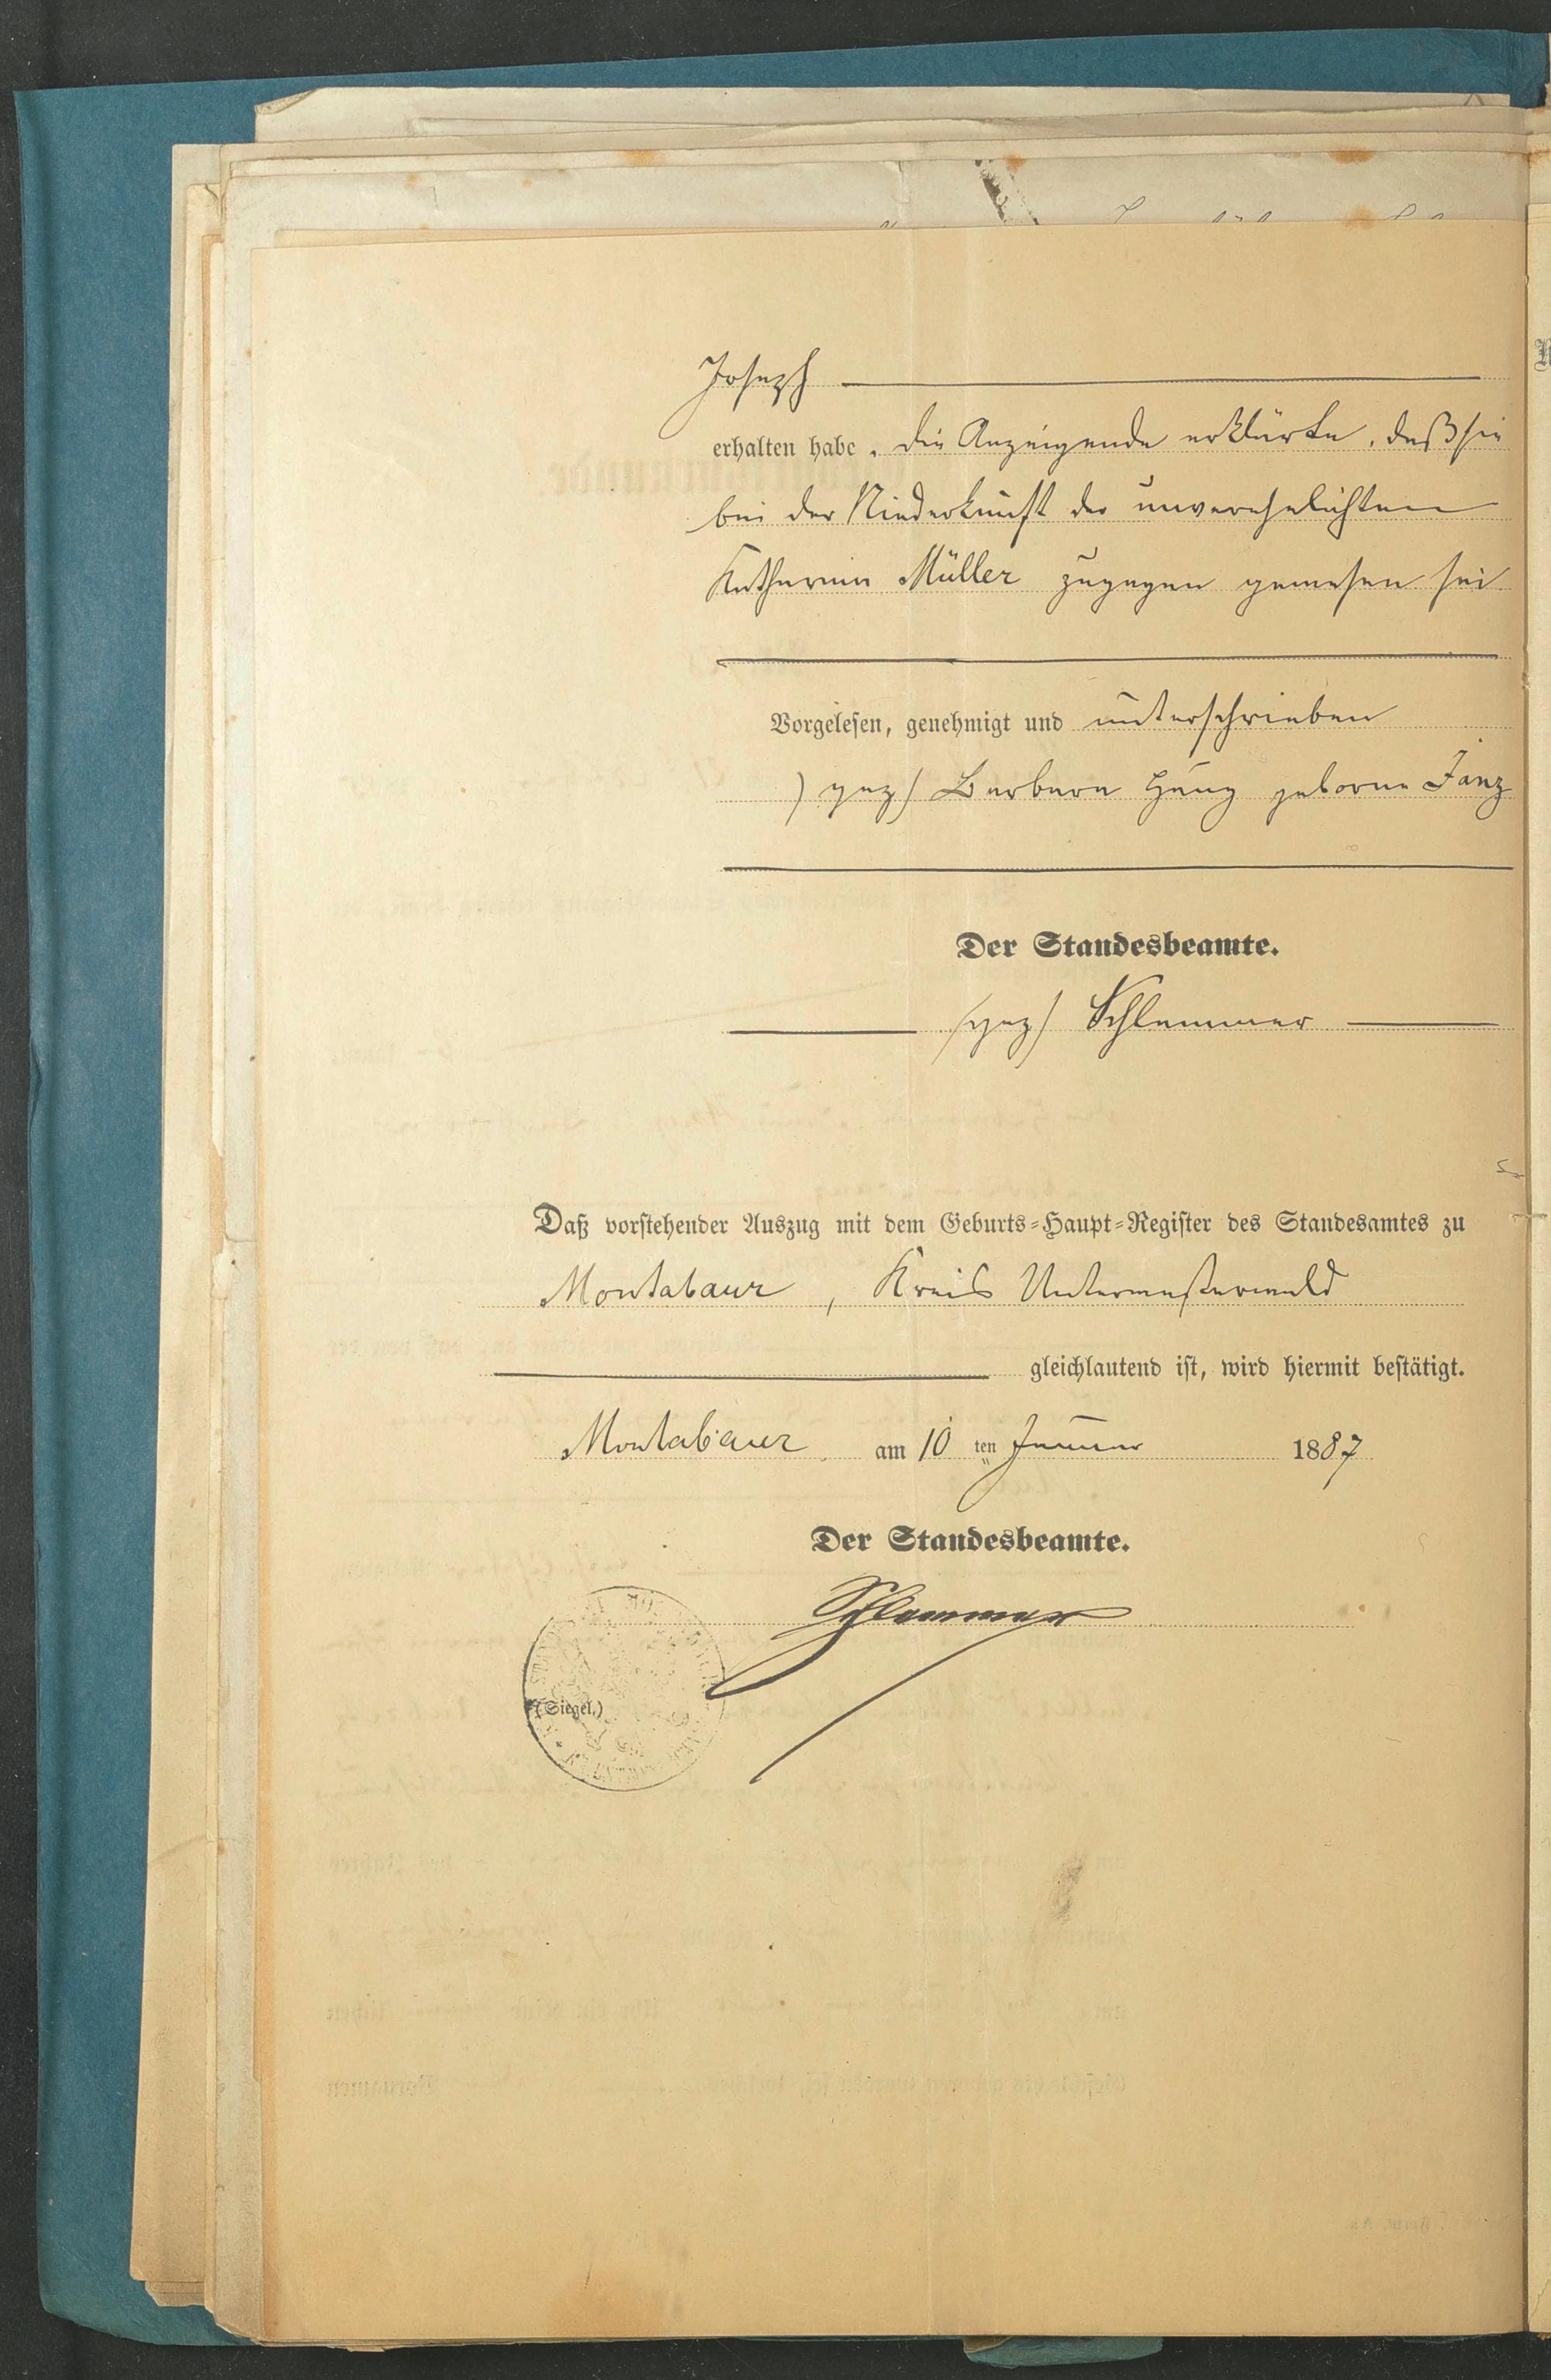 Joseph
erhalten habe. Die Anzeigende erklärte, daß sie
bei der Niederkunft der unverehelichten
Katharina Müller zugegen gewesen sei
Vorgelesen, genehmigt und unterschrieben
) gez) Barbara Haug geborne Janz
Der Standesbeamte.
(gez) Schlemmer
Daß vorstehender Auszug mit dem Geburts-Haupt-Register des Standesamtes zu
Montabaur, Kreis Unterwesterwald
gleichlautend ist, wird hiermit bestätigt.
Montabaur am 10 ten Januar 1887
Der Standesbeamte.
Schlemmer
(Siegel.)